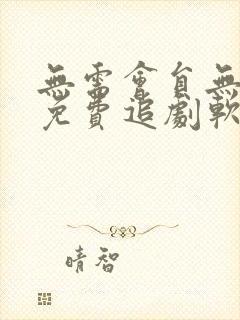 無需會員無
免費追劇軟
晴智